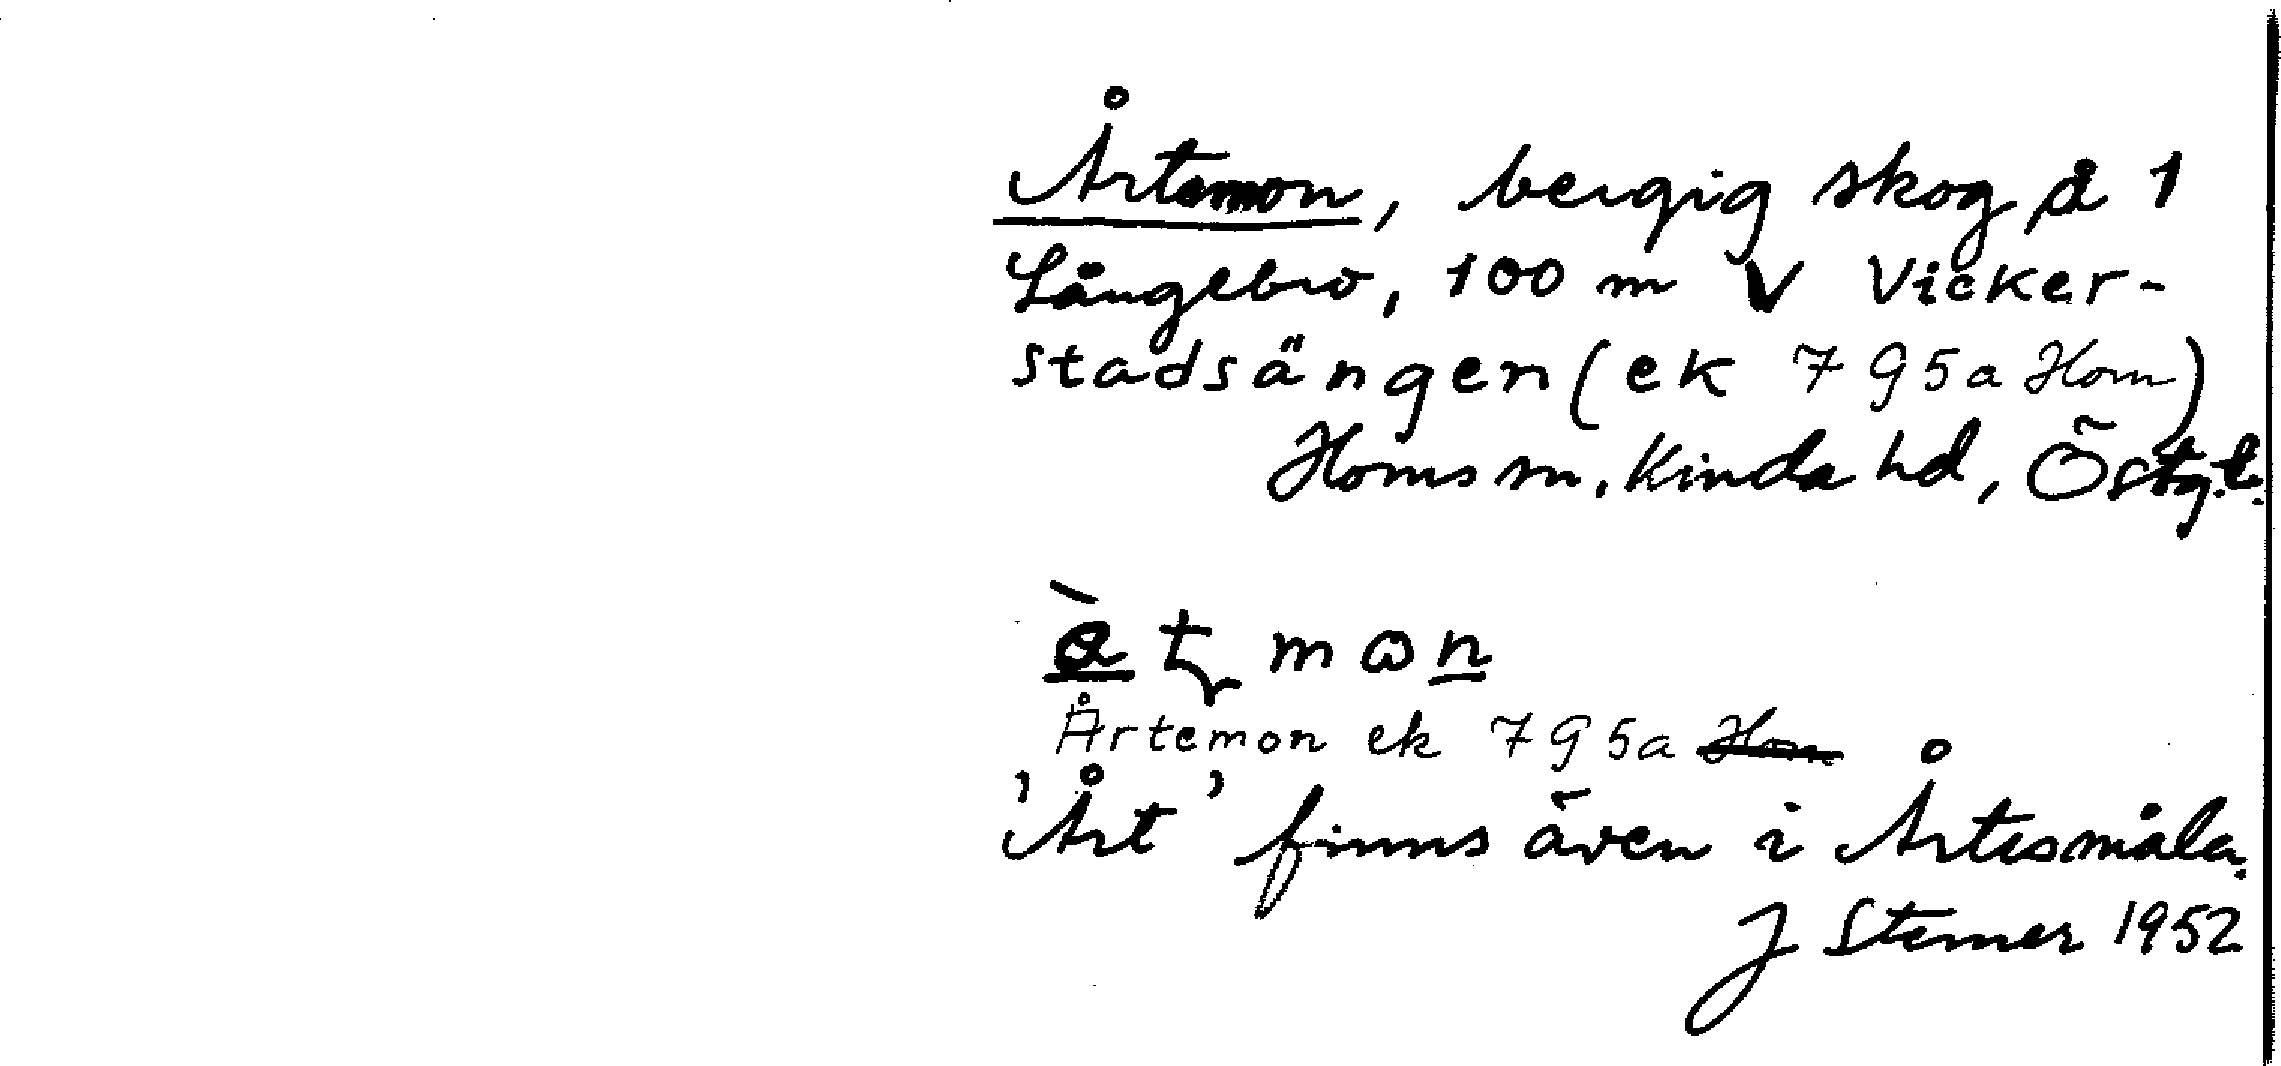 Årtemon, bergig skog å 1
Långebro, 100 m V Vicker-
stadsängen (ek 7 9 5a Hom)
Homs sn, Kinda hd, Östg.t.
àt mon
Årtemon ek 7 9 5a Hom
'Årt' finns även i Årtesmåla.
J Sterner 1952